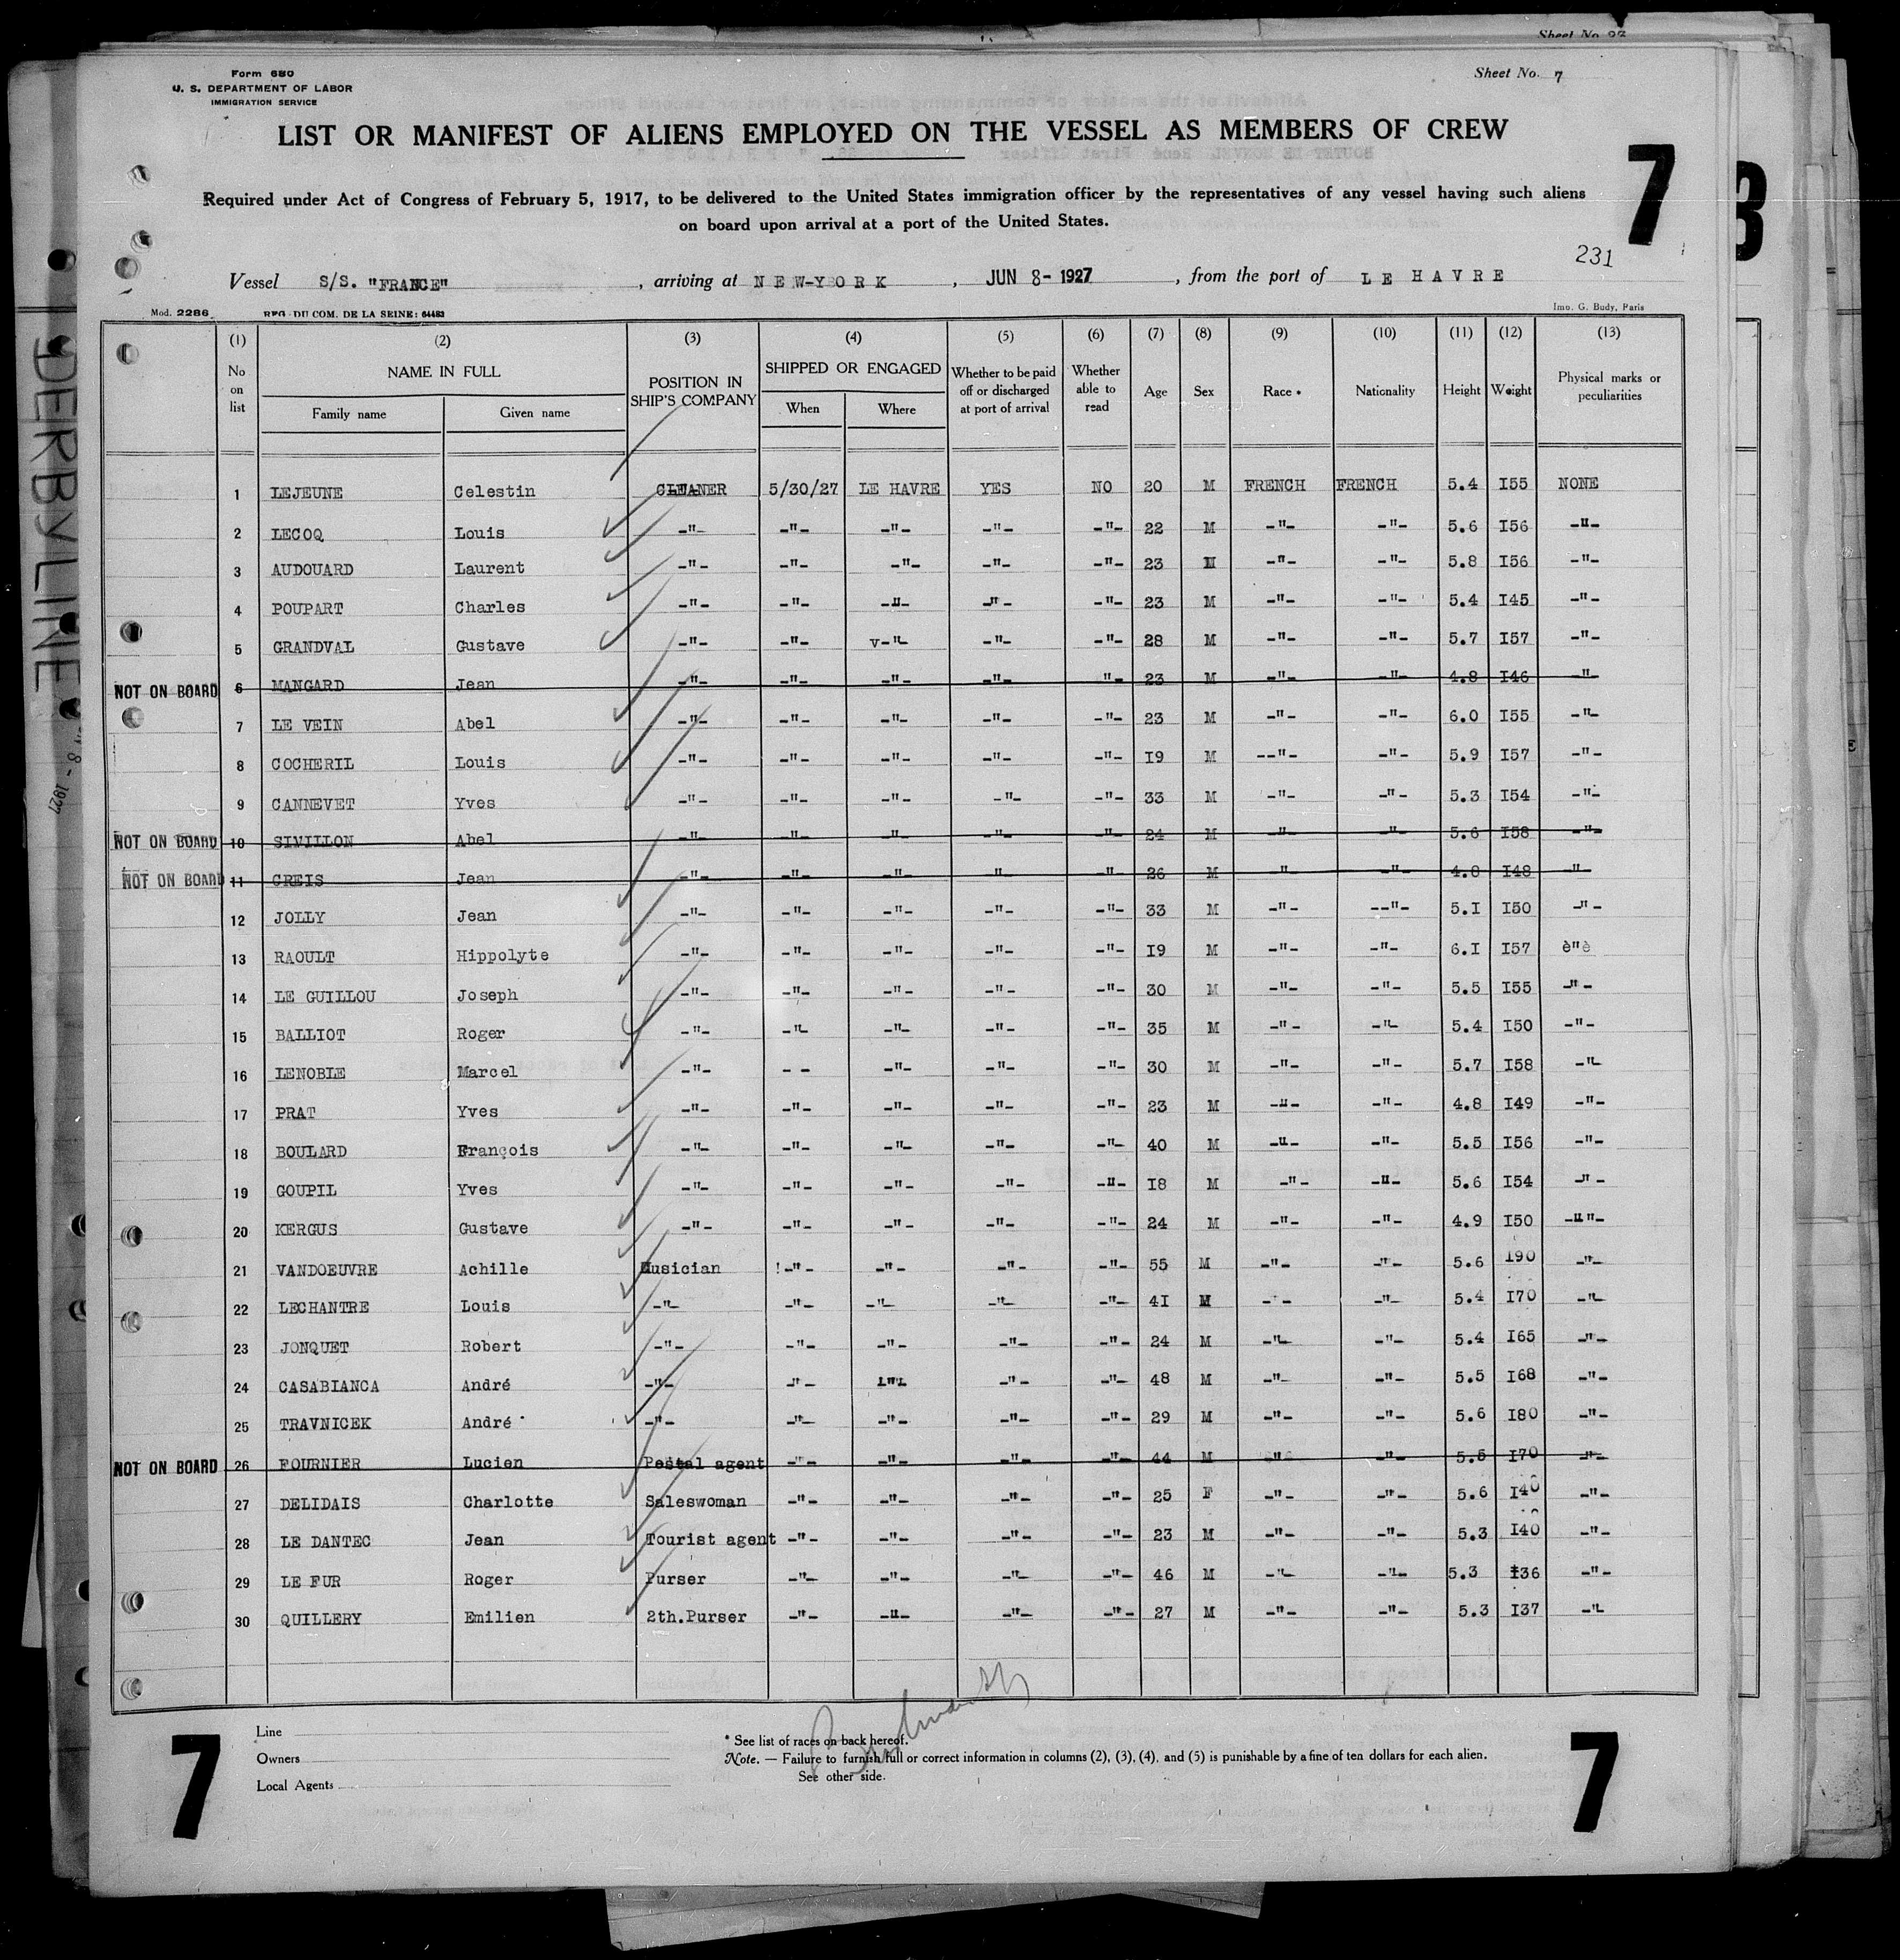 Sheet No. 7
Form 680
U. S. DEPARTMENT OF LABOR
IMMIGRATION SERVICE
LIST OR MANIFEST OF ALIENS EMPLOYED ON THE VESSEL AS MEMBERS OF CREW
7
Required under Act of Congress of February 5, 1917, to be delivered to the United States immigration officer by the representatives of any vessel having such aliens
on board upon arrival at a port of the United States.
231
Vessel S/S. "FRANCE", arriving at NEW-YORK, JUN 8- 1927, from the port of LE HAVRE
Mod. 2286 REG. DU COM. DE LA SEINE: 64483 Imp. G. Budy, Paris
(1) (2) (3) (4) (5) (6) (7) (8) (9) (10) (11) (12) (13)
No on list NAME IN FULL Family name Given name POSITION IN SHIP'S COMPANY SHIPPED OR ENGAGED When Where Whether to be paid off or discharged at port of arrival Whether able to read Age Sex Race * Nationality Height Weight Physical marks or peculiarities
1 LEJEUNE Celestin CLEANER 5/30/27 LE HAVRE YES NO 20 M FRENCH FRENCH 5.4 I55 NONE
2 LECOQ Louis -"- -"- -"- -"- -"- 22 M -"- -"- 5.6 I56 -"-
3 AUDOUARD Laurent -"- -"- -"- -"- -"- 23 M -"- -"- 5.8 I56 -"-
4 POUPART Charles -"- -"- -"- -"- -"- 23 M -"- -"- 5.4 I45 -"-
5 GRANDVAL Gustave -"- -"- v-"- -"- -"- 28 M -"- -"- 5.7 I57 -"-
NOT ON BOARD 6 MANGARD Jean -"- -"- -"- -"- "- 23 M -"- -"- 4.8 I46 -"-
7 LE VEIN Abel -"- -"- -"- -"- -"- 23 M -"- -"- 6.0 I55 -"-
8 COCHERIL Louis -"- -"- -"- -"- -"- I9 M --"- -"- 5.9 I57 -"-
9 CANNEVET Yves -"- -"- -"- -"- -"- 33 M -"- -"- 5.3 I54 -"-
NOT ON BOARD 10 SIVILLON Abel -"- -"- -"- -"- -"- 24 M -"- -"- 5.6 I58 -"-
NOT ON BOARD 11 CREIS Jean -"- -"- -"- -"- -"- 26 M -"- -"- 4.8 I48 -"-
12 JOLLY Jean -"- -"- -"- -"- -"- 33 M -"- --"- 5.I I50 -"-
13 RAOULT Hippolyte -"- -"- -"- -"- -"- I9 M -"- -"- 6.I I57 è"è
14 LE GUILLOU Joseph -"- -"- -"- -"- -"- 30 M -"- -"- 5.5 I55 -"-
15 BALLIOT Roger -"- -"- -"- -"- -"- 35 M -"- -"- 5.4 I50 -"-
16 LENOBLE Marcel -"- - - -"- -"- -"- 30 M -"- -"- 5.7 I58 -"-
17 PRAT Yves -"- -"- -"- -"- -"- 23 M -"- -"- 4.8 I49 -"-
18 BOULARD François -"- -"- -"- -"- -"- 40 M -"- -"- 5.5 I56 -"-
19 GOUPIL Yves -"- -"- -"- -"- -"- I8 M -"- -"- 5.6 I54 -"-
20 KERGUS Gustave -"- -"- -"- -"- -"- 24 M -"- -"- 4.9 I50 -""-
21 VANDOEUVRE Achille Musician !-"- -"- -"- -"- 55 M -"- -"- 5.6 I90 -"-
22 LECHANTRE Louis -"- -"- -"- -"- -"- 4I M -"- -"- 5.4 I70 -"-
23 JONQUET Robert -"- -"- -"- -"- -"- 24 M -"- -"- 5.4 I65 -"-
24 CASABIANCA André -"- -"- -"- -"- -"- 48 M -"- -"- 5.5 I68 -"-
25 TRAVNICEK André -"- -"- -"- -"- -"- 29 M -"- -"- 5.6 I80 -"-
NOT ON BOARD 26 FOURNIER Lucien Postal agent -"- -"- -"- -"- 44 M -"- -"- 5.5 I70 -"-
27 DELIDAIS Charlotte Saleswoman -"- -"- -"- -"- 25 F -"- -"- 5.6 I40 -"-
28 LE DANTEC Jean Tourist agent -"- -"- -"- -"- 23 M -"- -"- 5.3 I40 -"-
29 LE FUR Roger Purser -"- -"- -"- -"- 46 M -"- -"- 5.3 I36 -"-
30 QUILLERY Emilien 2th.Purser -"- -"- -"- -"- 27 M -"- -"- 5.3 I37 -"-
7
Line
Owners
Local Agents
* See list of races on back hereof.
Note. — Failure to furnish full or correct information in columns (2), (3), (4), and (5) is punishable by a fine of ten dollars for each alien.
See other side.
7
DERBY LINE
8 - 1927